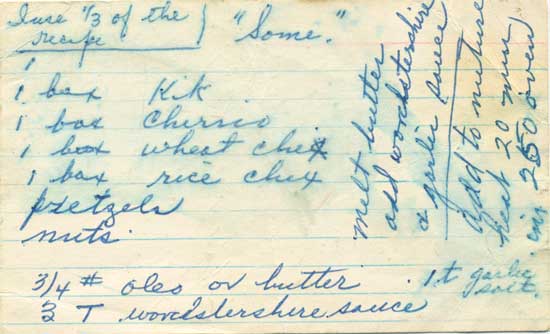 I use 1/3 of the
recipe
"Some."
1
1 box Kik
1 box cherrio
1 box wheat chex
1 box rice chex
pretzels
nuts.
3/4 # oleo or butter
3 T worcstershire sauce
1 t garlic
salt.
melt butter
add worcstershire
& garlic sauce
add to mixture
heat 20 min
in 250 oven